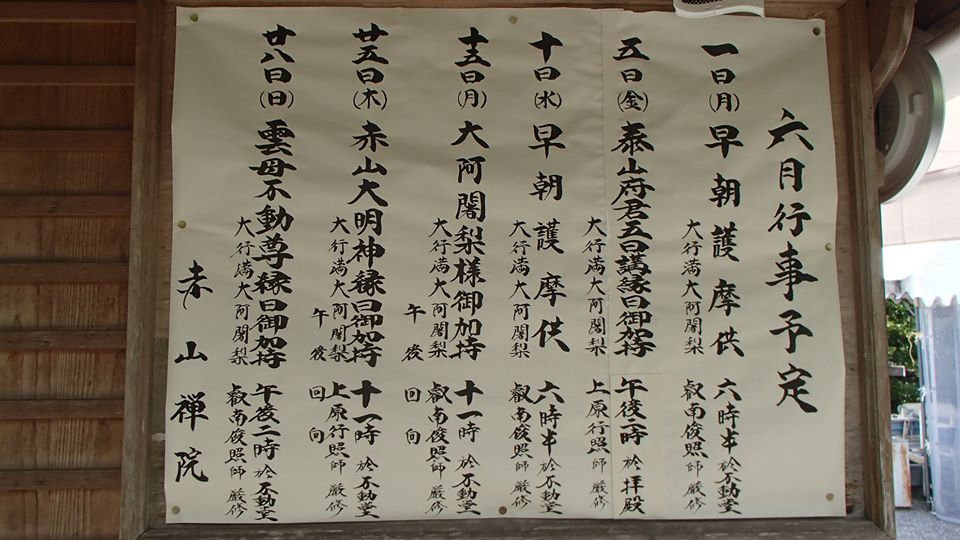 六月行事予定
一日(月)早朝護摩供 六時半 於不動堂
大行満大阿闍梨 叡南俊照師 厳修
五日(金)泰山府君五日講縁日御加持 午後二時 於拝殿
大行満大阿闍梨 上原行照師 厳修
十日(水)早朝護摩供 六時半 於不動堂
大行満大阿闍梨 叡南俊照師 厳修
十五日(月)大阿闍梨様御加持 十一時 於不動堂
大行満大阿闍梨 叡南俊照師 厳修
午後 回向
廿五日(木)赤山大明神縁日御加持 十一時 於不動堂
大行満大阿闍梨 上原行照師 厳修
午後 回向
廿八日(日)雲母不動尊縁日御加持 午後二時 於不動堂
大行満大阿闍梨 叡南俊照師 厳修
赤山禅院